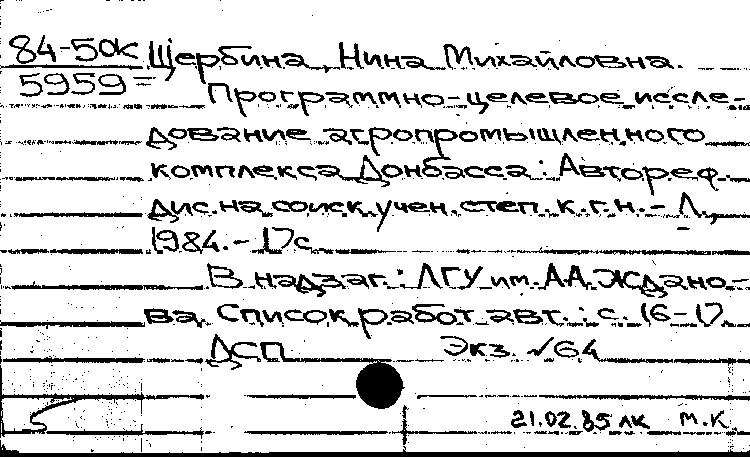 84-50к Щербина, Нина Михайловна.
5959=
Программно-целевое иссле-
дование агропромышленного
комплекса Донбасса: Автореф.
дис. на соиск. учен. степ. к.г.н. - Л.,
1984. - 17с.
В надзаг.: ЛГУ им. А.А. Ждано-
ва. Список работ авт.: с. 16-17.
ДСП Экз. №64
5
21.02.85 лк м.к.